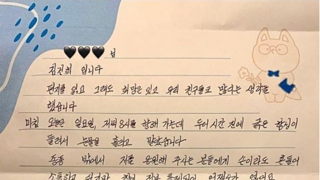 🖤🖤🖤 님
김진희 입니다
편지를 읽고 그래도 희망은 있고 우리 친구들도 많다는 생각을
했습니다
마침 오늘은 일요일, 저녁 8시를 향해 가는데 두어시간 전에 굵은
들려서 눈물을 흘리고 말았습니다
밖에서 저를 응원해 주시는 분들에게 손이라도 흔들어